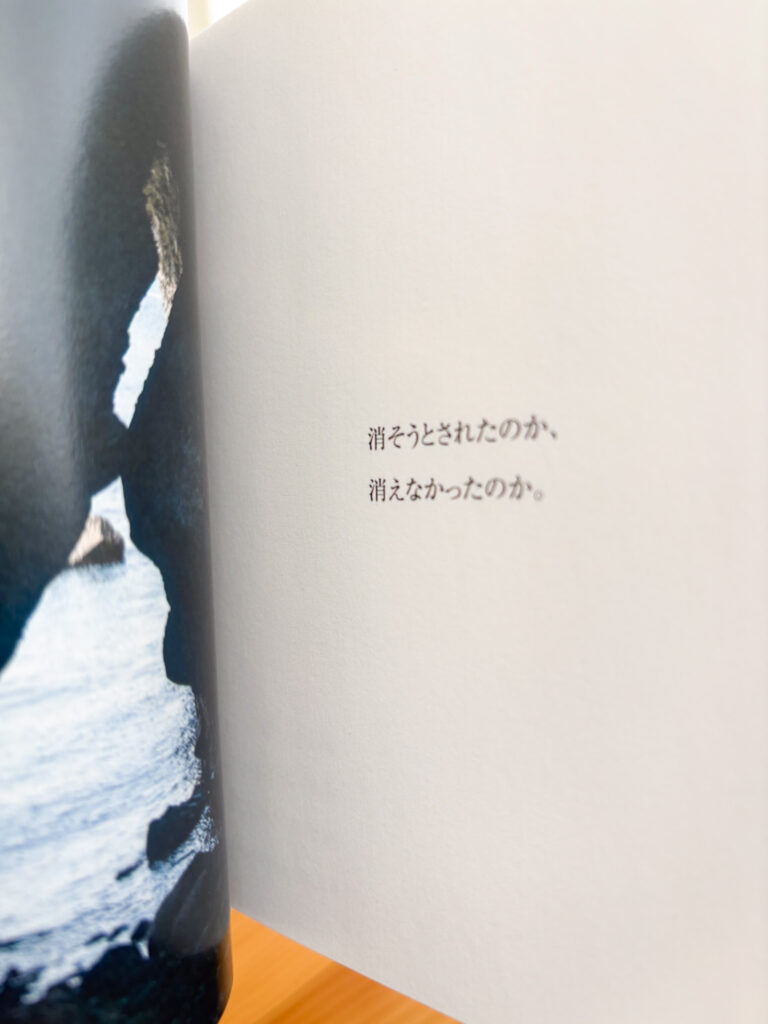 消そうとされたのか、
消えなかったのか。